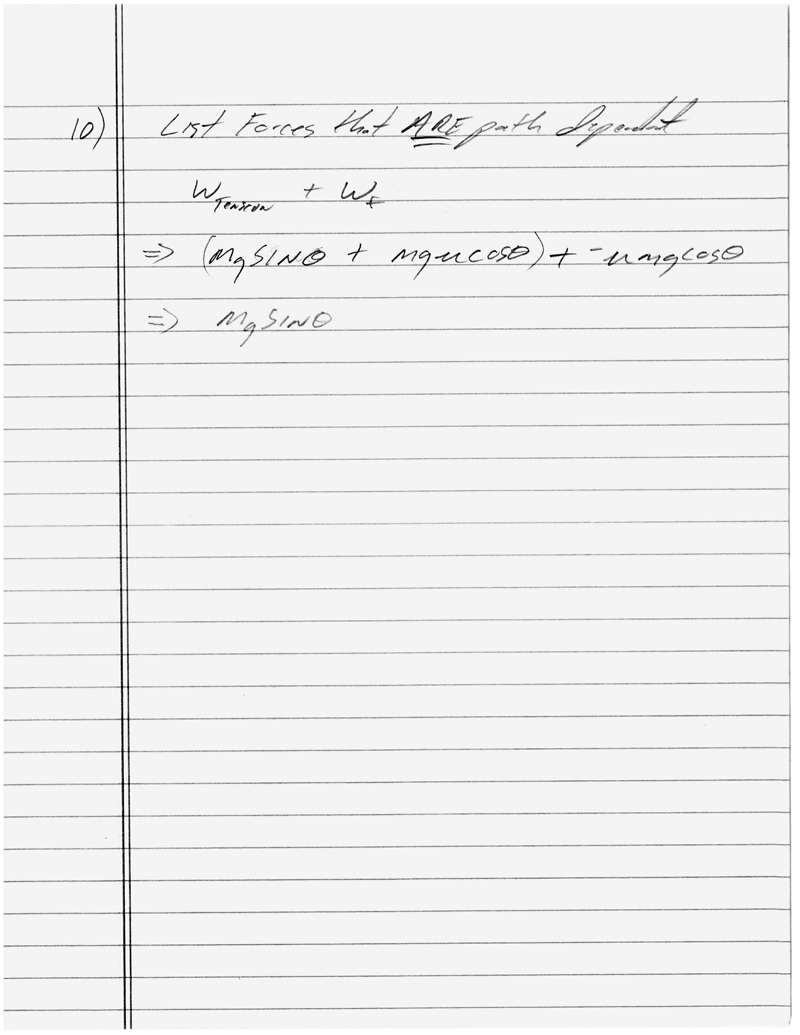 10) List Forces that ARE path dependent
W_Tension + W_f
=> (mg SINθ + mgμ cosθ) + -μmg cosθ
=> mg SINθ